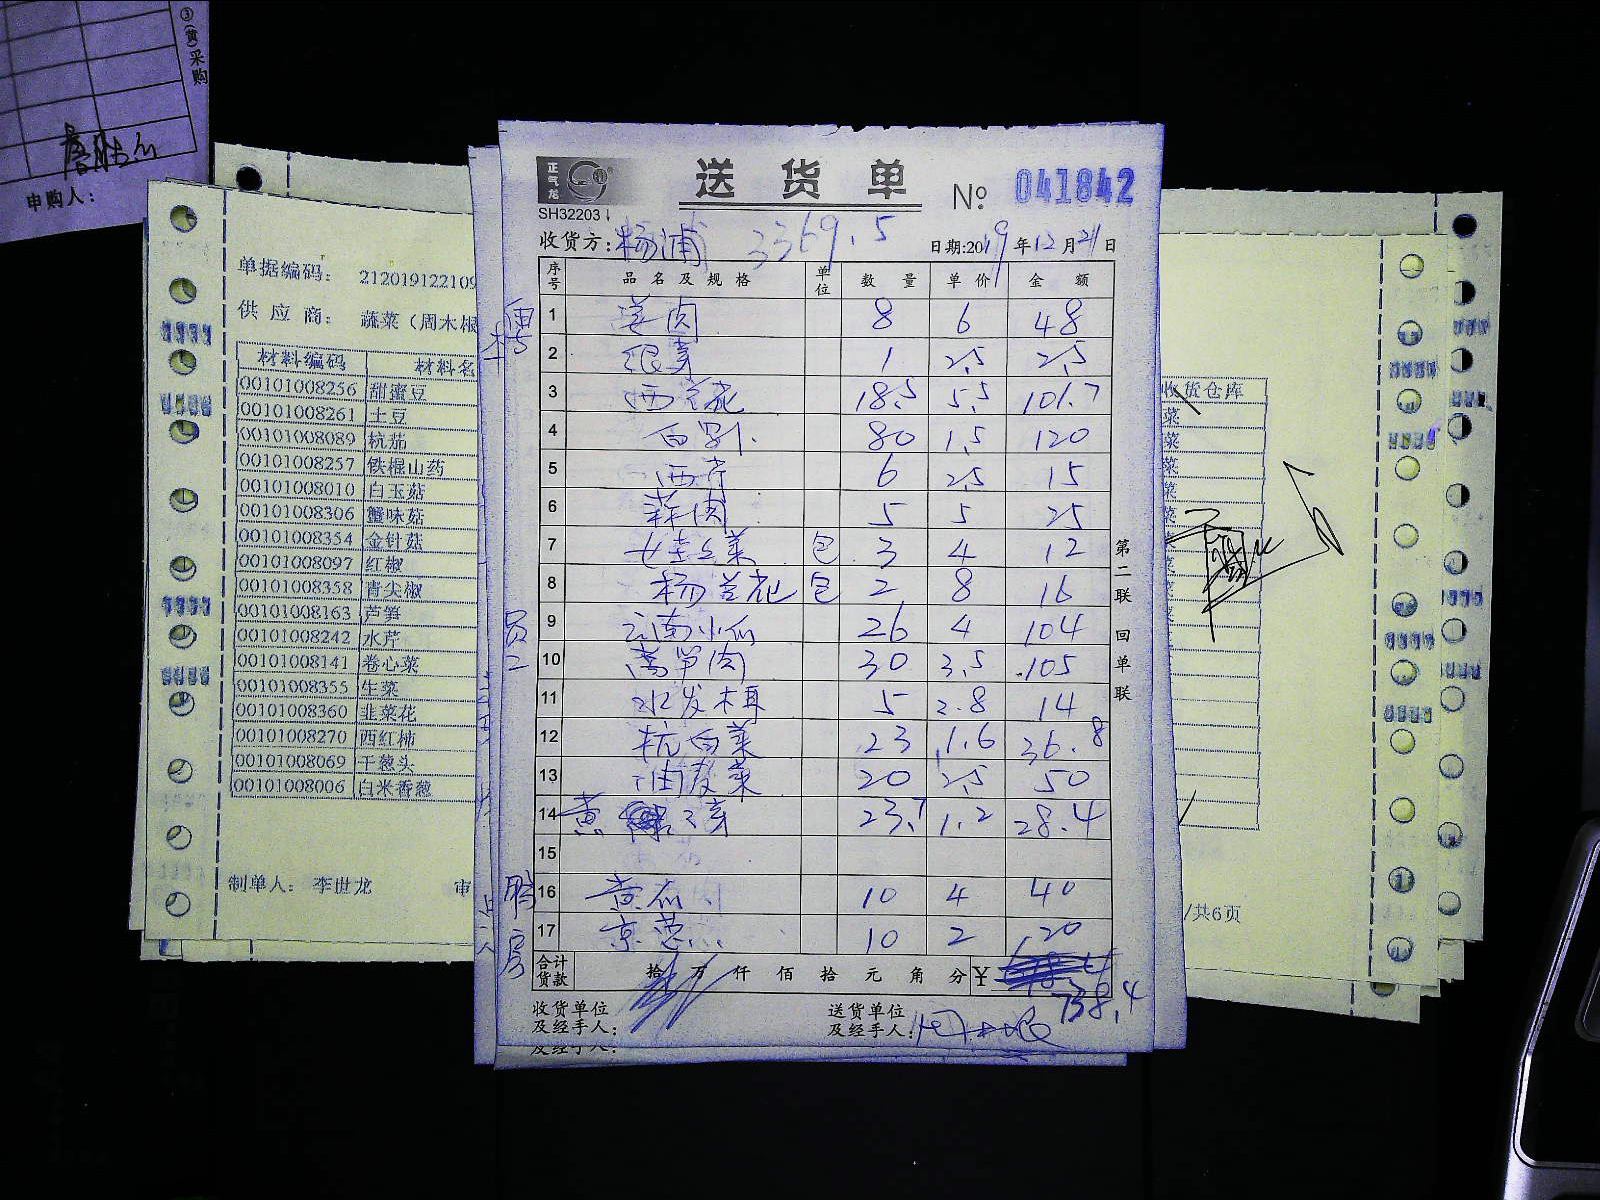 ③(黄)采购
申购人：
单据编码： 212019122109
供 应 商： 蔬菜（周木根
材料编码 材料名
00101008256 甜蜜豆
00101008261 土豆
00101008089 杭茄
00101008257 铁棍山药
00101008010 白玉菇
00101008306 蟹味菇
00101008354 金针菇
00101008097 红椒
00101008358 青尖椒
00101008163 芦笋
00101008242 水芹
00101008141 卷心菜
00101008355 生菜
00101008360 韭菜花
00101008270 西红柿
00101008069 干葱头
00101008006 白米香葱
制单人： 李世龙 审
正气龙
SH32203
送货单 № 041842
收货方：杨浦 3369.5 日期:2019年12月21日
序号 品名及规格 单位 数量 单价 金额
1 8 6 48
2 银芽 1 2.5 2.5
3 西兰花 18.5 5.5 101.7
4 80 1.5 120
5 西芹 6 2.5 15
6 蒜肉 5 5 25
7 包 3 4 12
8 杨兰花 包 2 8 16
9 云南小瓜 26 4 104
10 莴笋肉 30 3.5 105
11 水发木耳 5 2.8 14
12 杭白菜 23 1.6 36.8
13 油麦菜 20 2.5 50
14 黄豆芽 23.7 1.2 28.4
15
16 黄瓜 10 4 40
17 京葱 10 2 20
合计货款 拾 万 仟 佰 拾 元 角 分 ¥
738.4
收货单位及经手人：
送货单位及经手人：周木根
第二联 回单联
员工
房
及经手人：
收货仓库
菜
菜
菜
菜
菜
/共6页